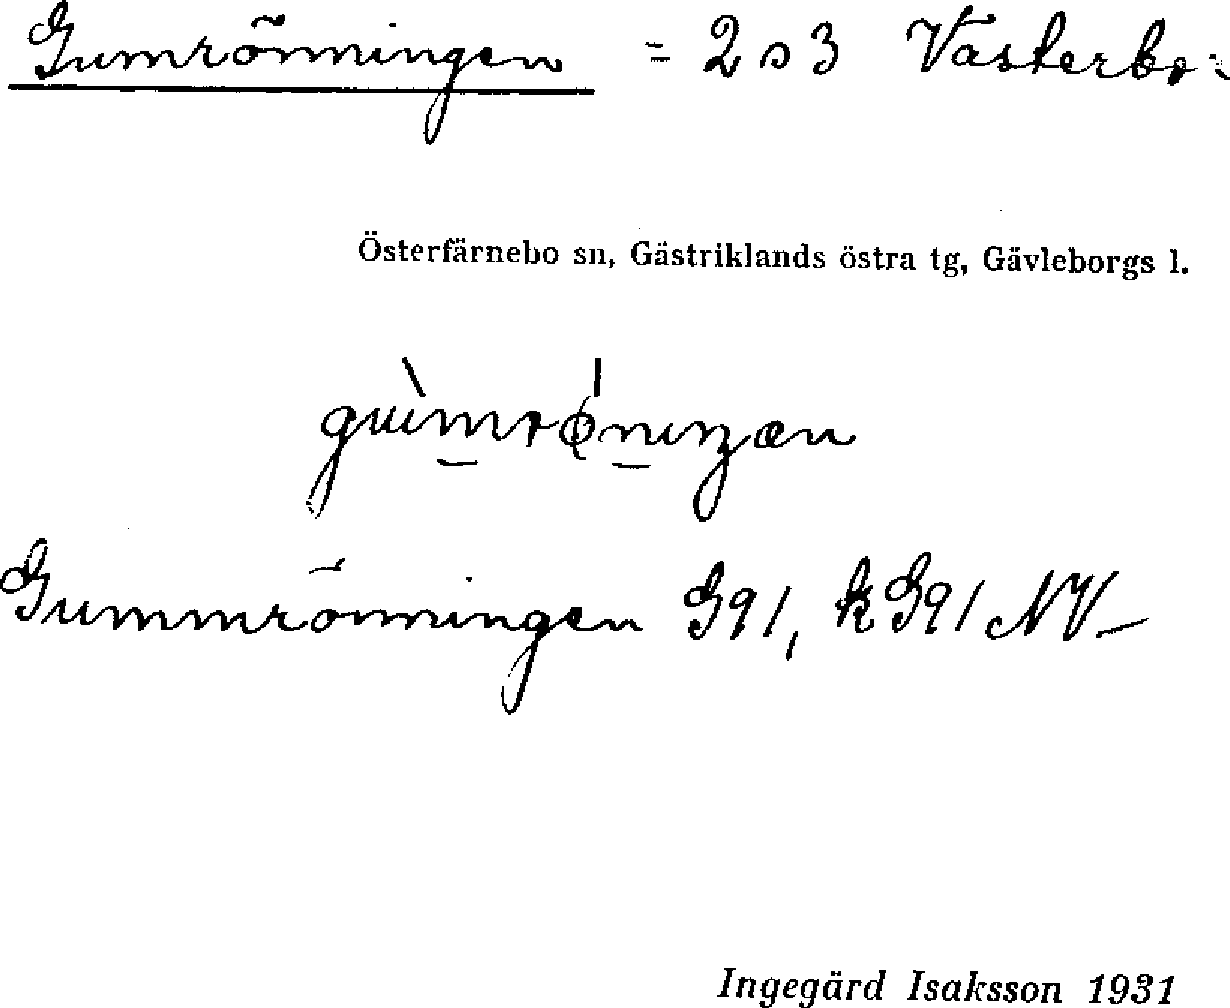 Gumrönningen = 2 o 3 Västerbo:
Österfärnebo sn, Gästriklands östra tg, Gävleborgs l.
Gummrönningen G91, k G91 NV–
Ingegärd Isaksson 1931